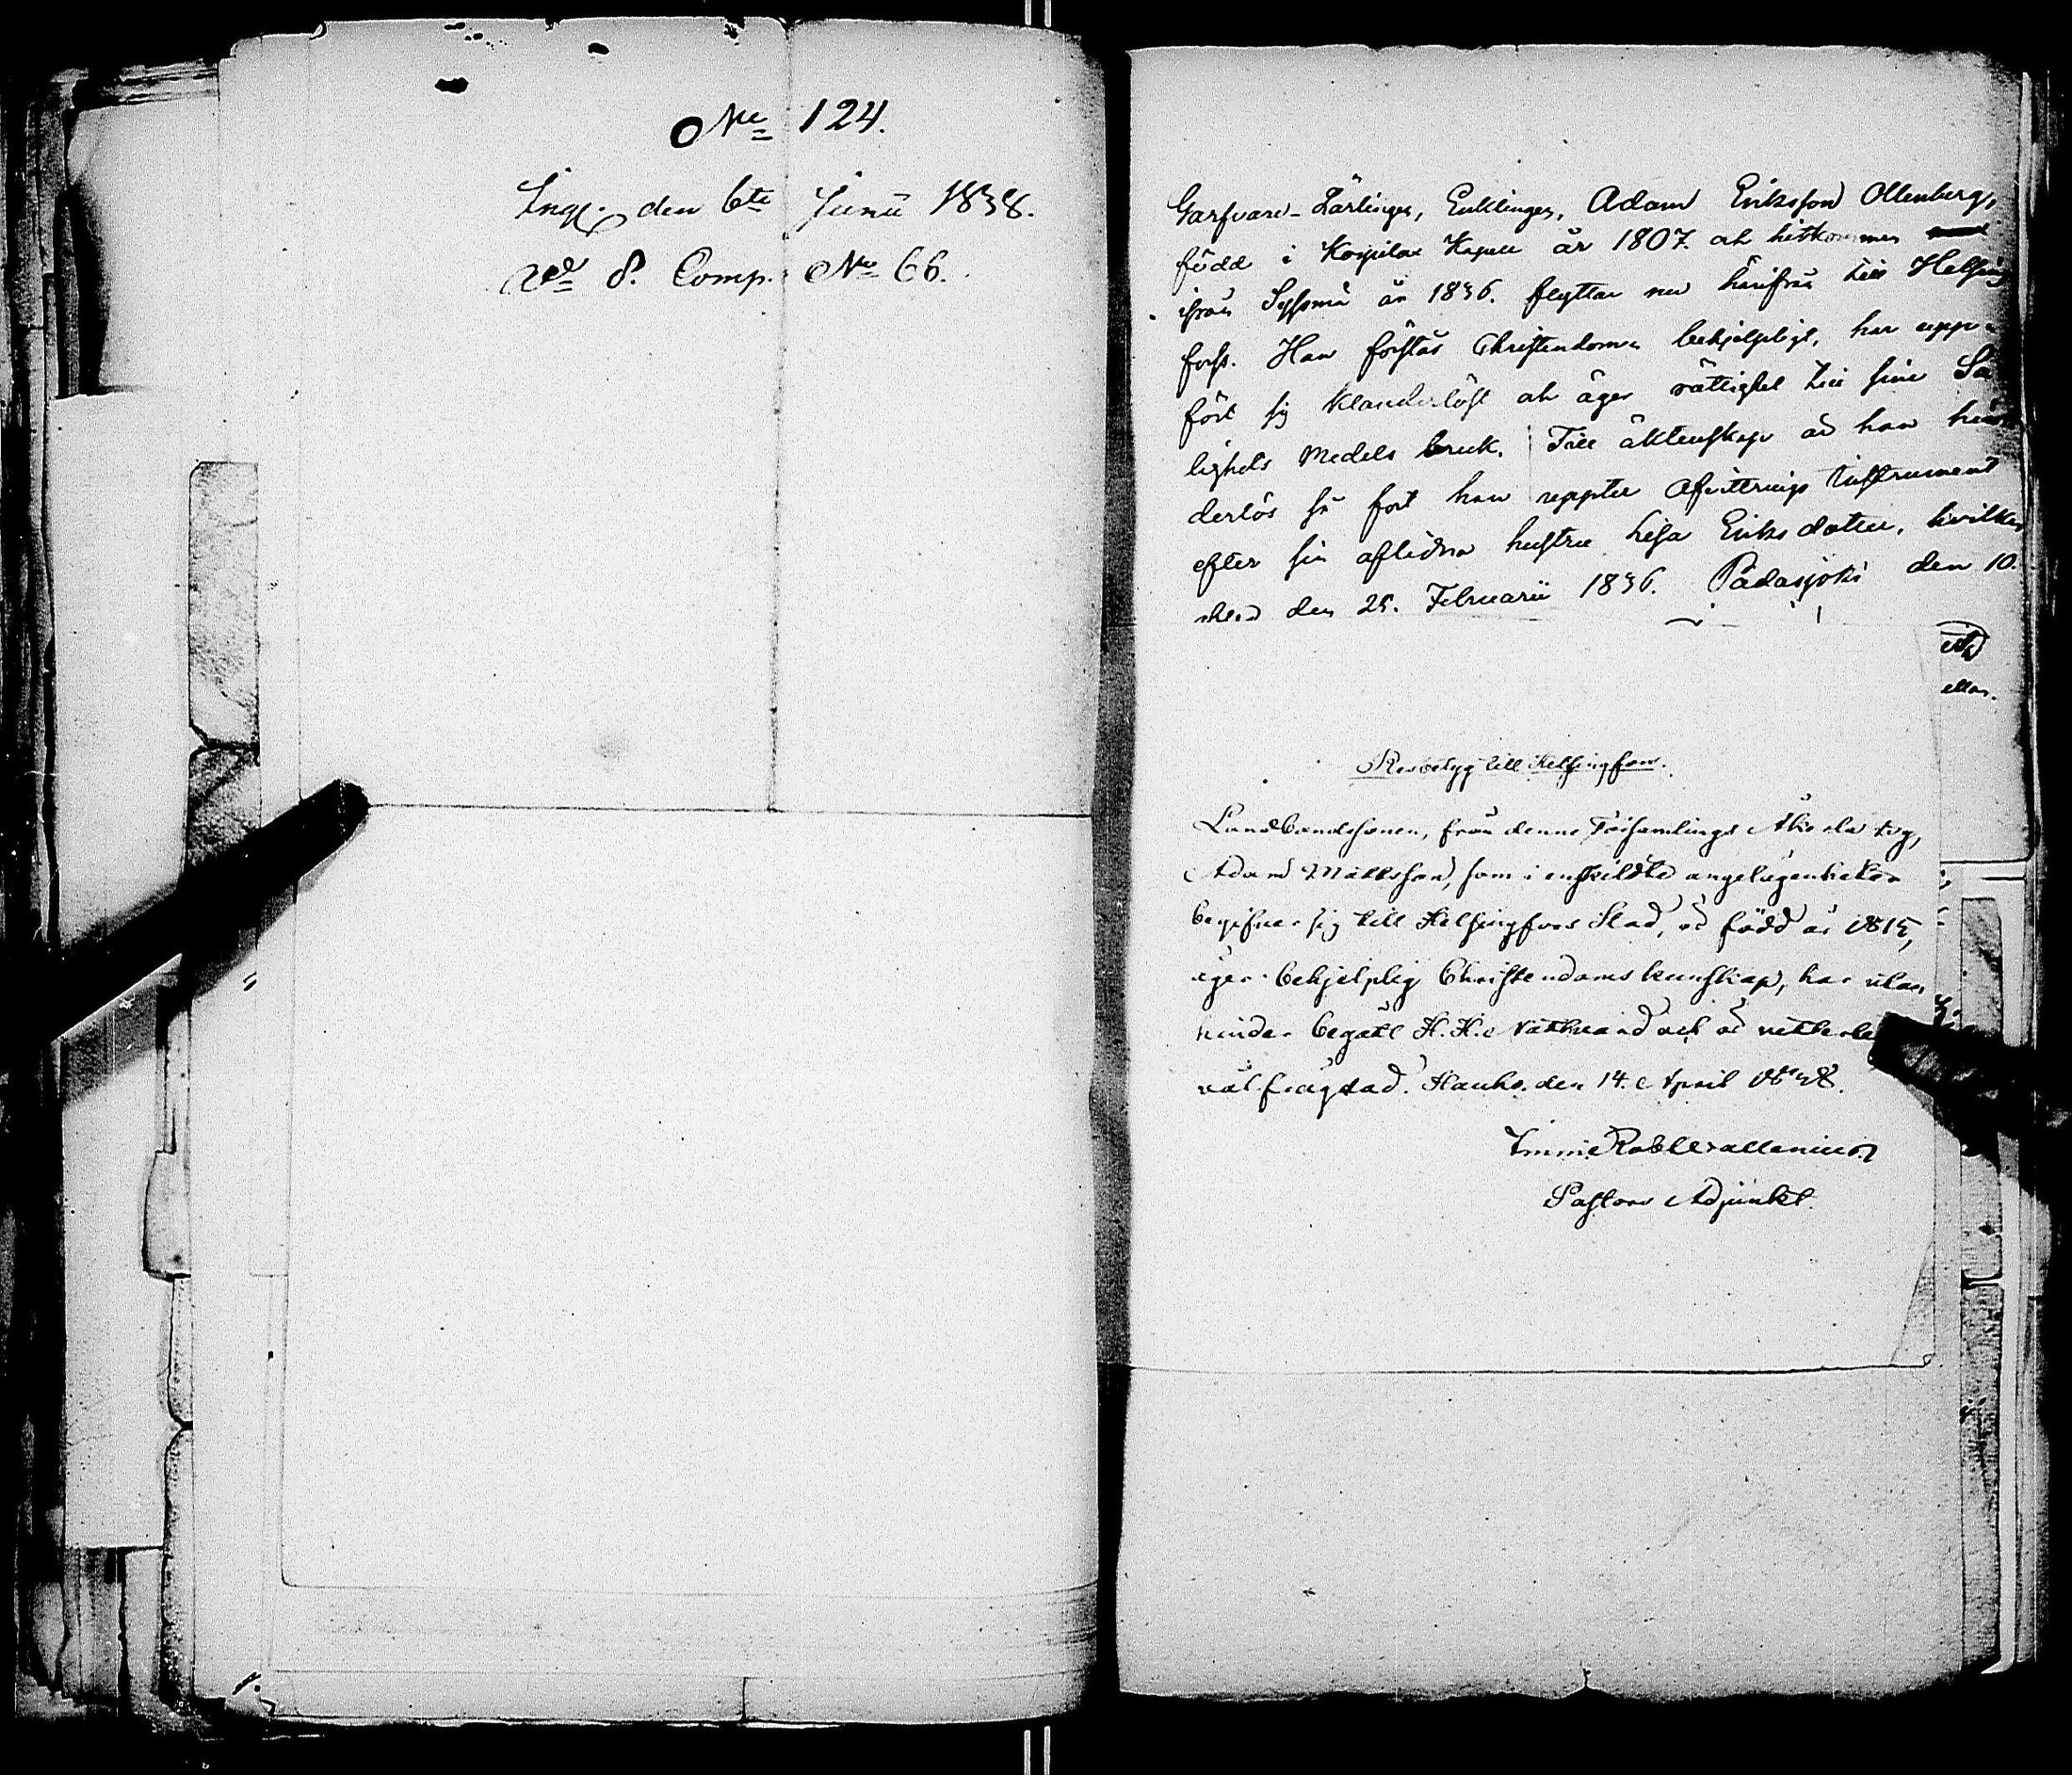 No 124.
Ing. den 6te Junii 1838.
8. Comp. No 66.
Garfvare-Lärlingen, Enklingen, Adam Eriksson Ollenberg,
född i Korpilax Kapell år 1807 ok hitkommen
ifrån Syssmä år 1836. flyttar nu härifrån till Helsing
fors. Han förstår Christendomen behjelpligt, har upp-
fört sig klanderlöst ok äger rättighet till sine Sa
lighets Medels bruk. Till äktenskap är han hin
derlös så fort han uppter Afvittrings Instrument
efter sin aflidna hustru Lisa Eriksdotter, hvilken
den 25. Februarii 1836. Padasjoki den 10.
ellar.
Resebetyg till Helsingfors.
Landbondesonen, från denne Församlings by,
Adam Mattsson, som i enskildte angelägenheter
begifver sig till Helsingfors Stad, är född år 1815,
äger behjelplig Christendoms kunskap, har utan
hinder begått H. H. Nattvard och är
välfrägdad. Hauho den 14. April 1838.
Pastors Adjunkt.